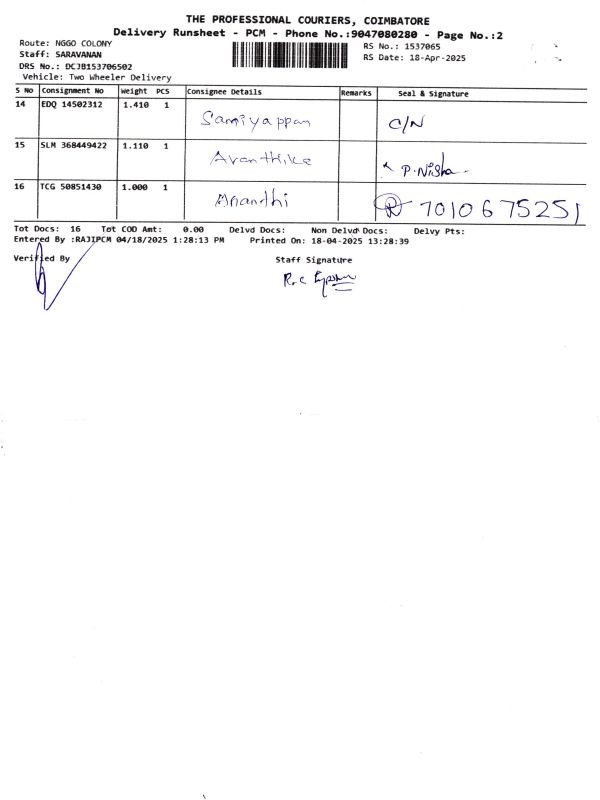 THE PROFESSIONAL COURIERS, COIMBATORE
Delivery Runsheet - PCM - Phone No.:9047080280 - Page No.:2
Route: NGGO COLONY
Staff: SARAVANAN
DRS No.: DCJB153706502
Vehicle: Two Wheeler Delivery
RS No.: 1537065
RS Date: 18-Apr-2025
S No Consignment No Weight PCS Consignee Details Remarks Seal & Signature
14 EDQ 14502312 1.410 1 Samiyappan C/N
15 SLM 368449422 1.110 1 Avanthika P. Nisha
16 TCG 50851430 1.000 1 Anandhi 7010675251
Tot Docs: 16 Tot COD Amt: 0.00 Delvd Docs: Non Delvd Docs: Delvy Pts:
Entered By :RAJIPCM 04/18/2025 1:28:13 PM Printed On: 18-04-2025 13:28:39
Verified By Staff Signature